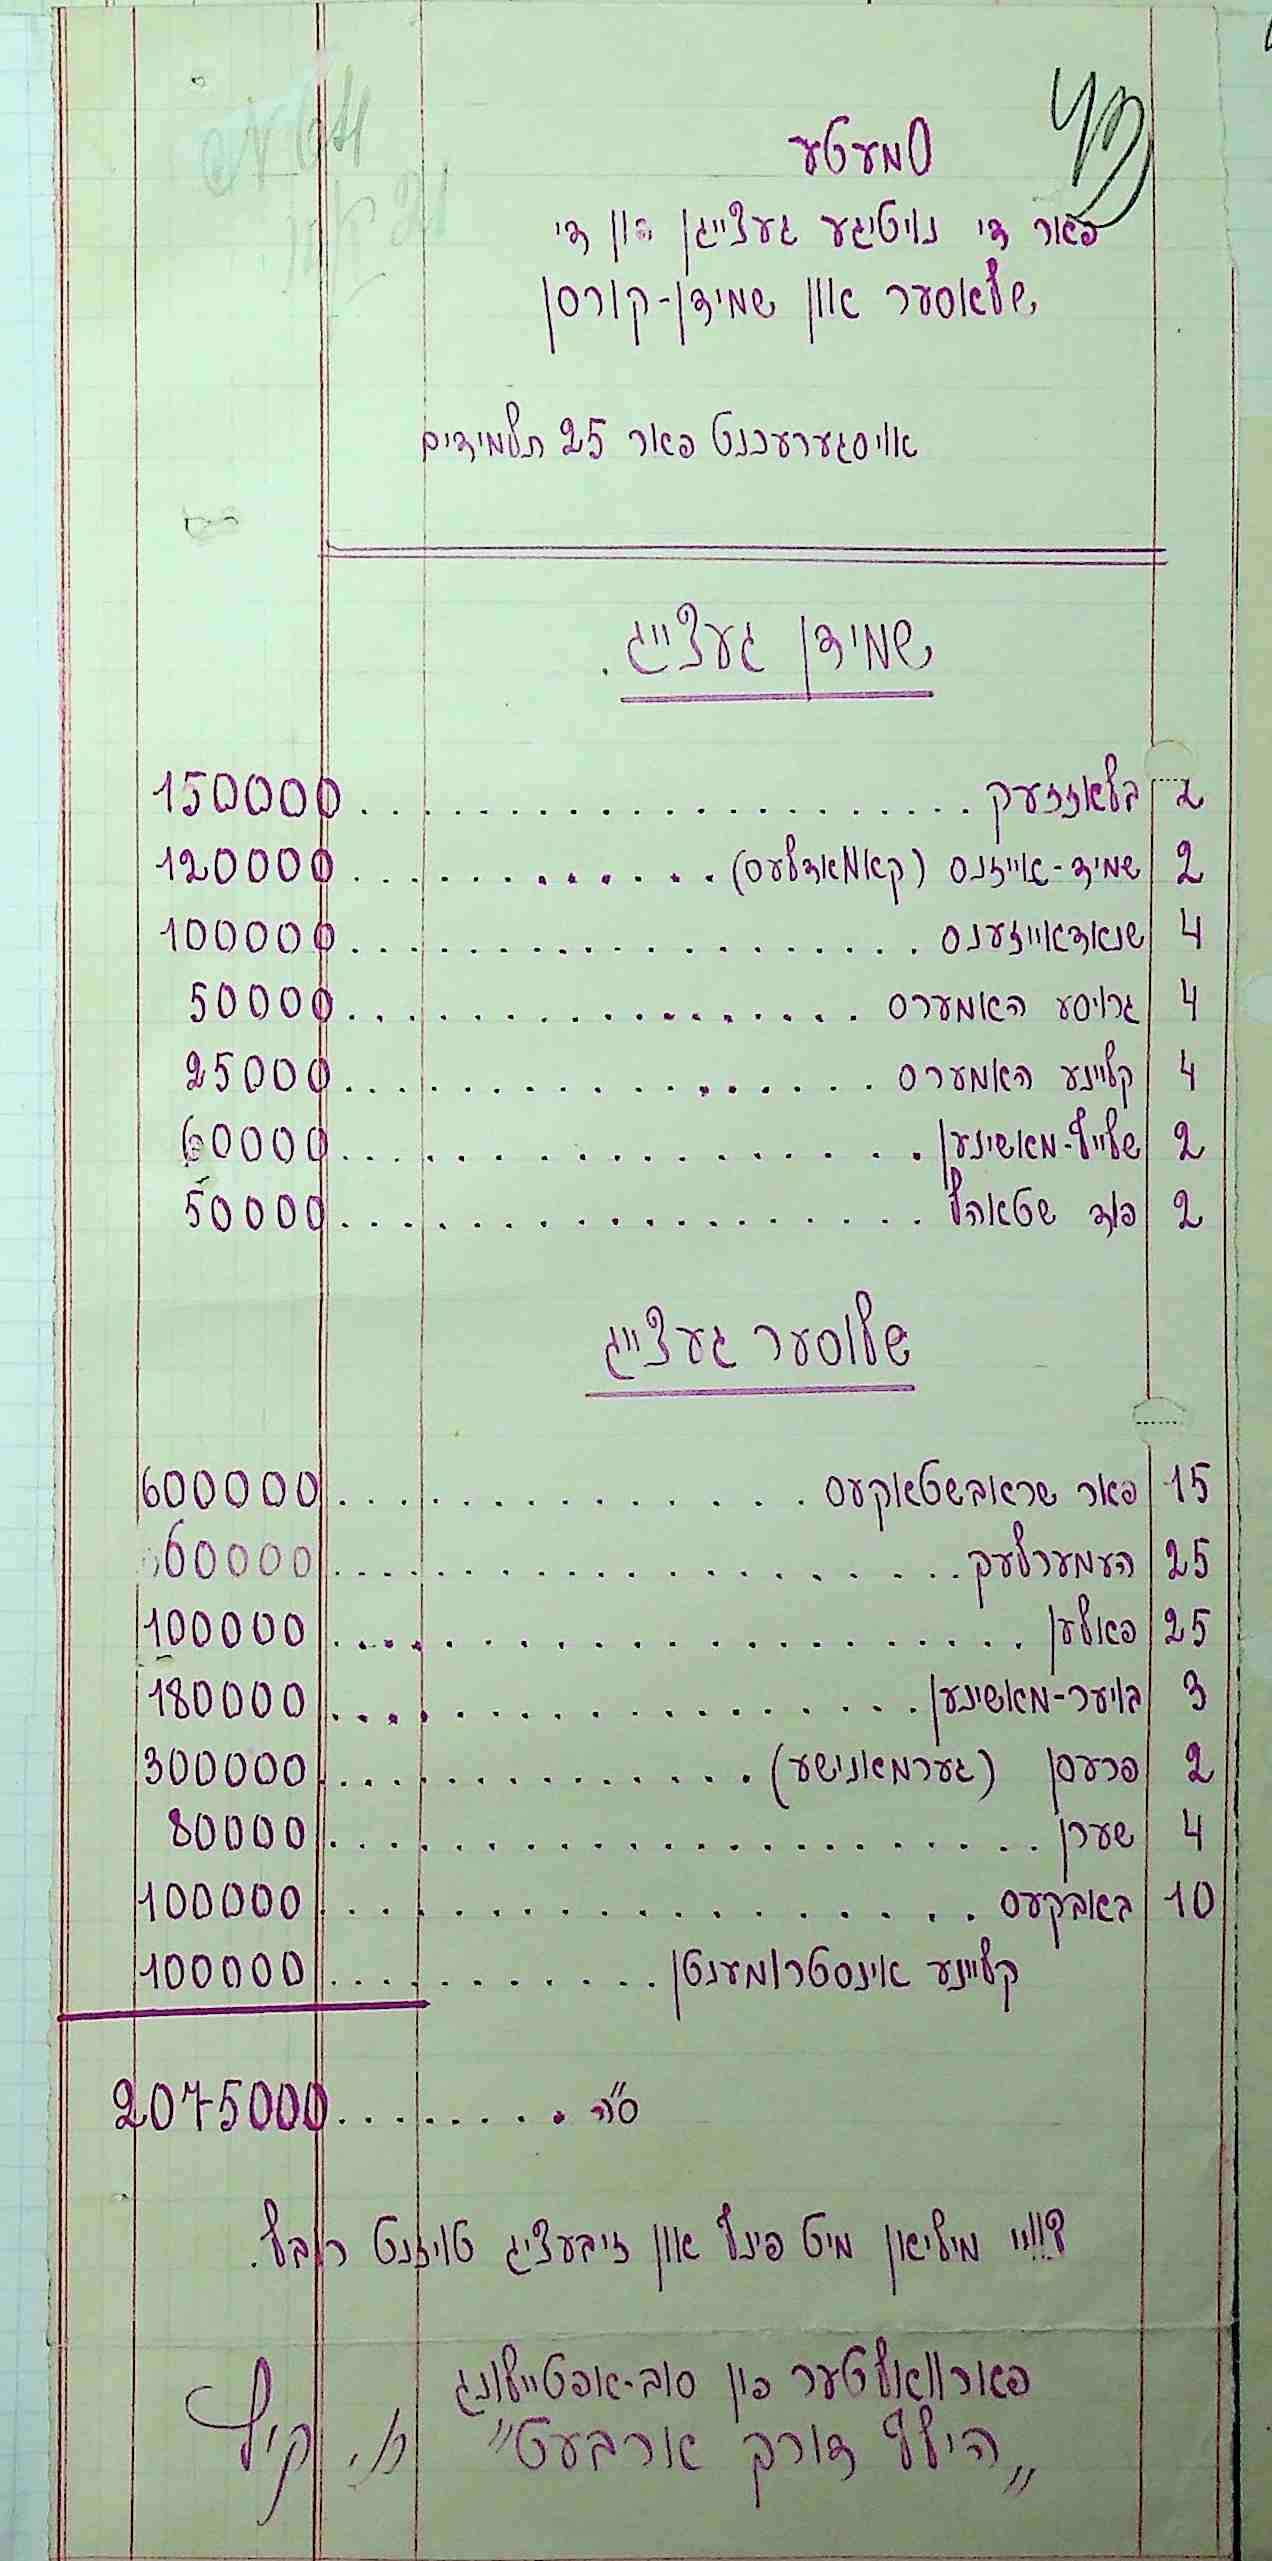 סמעטע
פאר די נויטיגע געצייגן פון די
שלאסער און שמידן-קורסן
אויסגערעכנט פאר 25 תלמידים
שמידן געצייג.
2 בלאזזעק .......... 150000
2 שמיד-אייזנס (קאוואדלעס) .......... 120000
4 שנאדאייזענס .......... 100000
4 גרויסע האמערס .......... 50000
4 קליינע האמערס .......... 25000
2 שלייף-מאשינען .......... 60000
2 פוד שטאהל .......... 50000
שלוסער געצייג
15 פאר שראובשטאקעס .......... 600000
25 העמערלעך .......... 60000
25 פאולען .......... 100000
3 בויער-מאשינען .......... 180000
2 פרעסן (גערמאנישע) .......... 300000
4 שערן .......... 80000
10 באבקעס .......... 100000
קליינע אינסטרומענטן .......... 100000
ס"ה ........ 2075000
צוויי מיליאן מיט פינף און זיבעציג טויזנט רובל.
פארוואלטער פון סוב-אפטיילונג
„הילף דורך ארבעט"